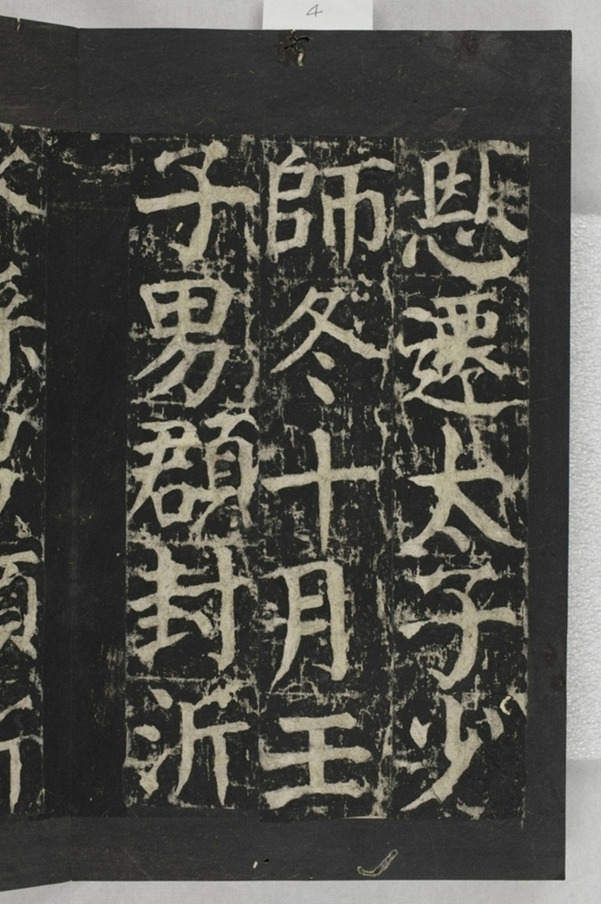 4
恩遷太子少
師冬十月壬
子男頵封沂